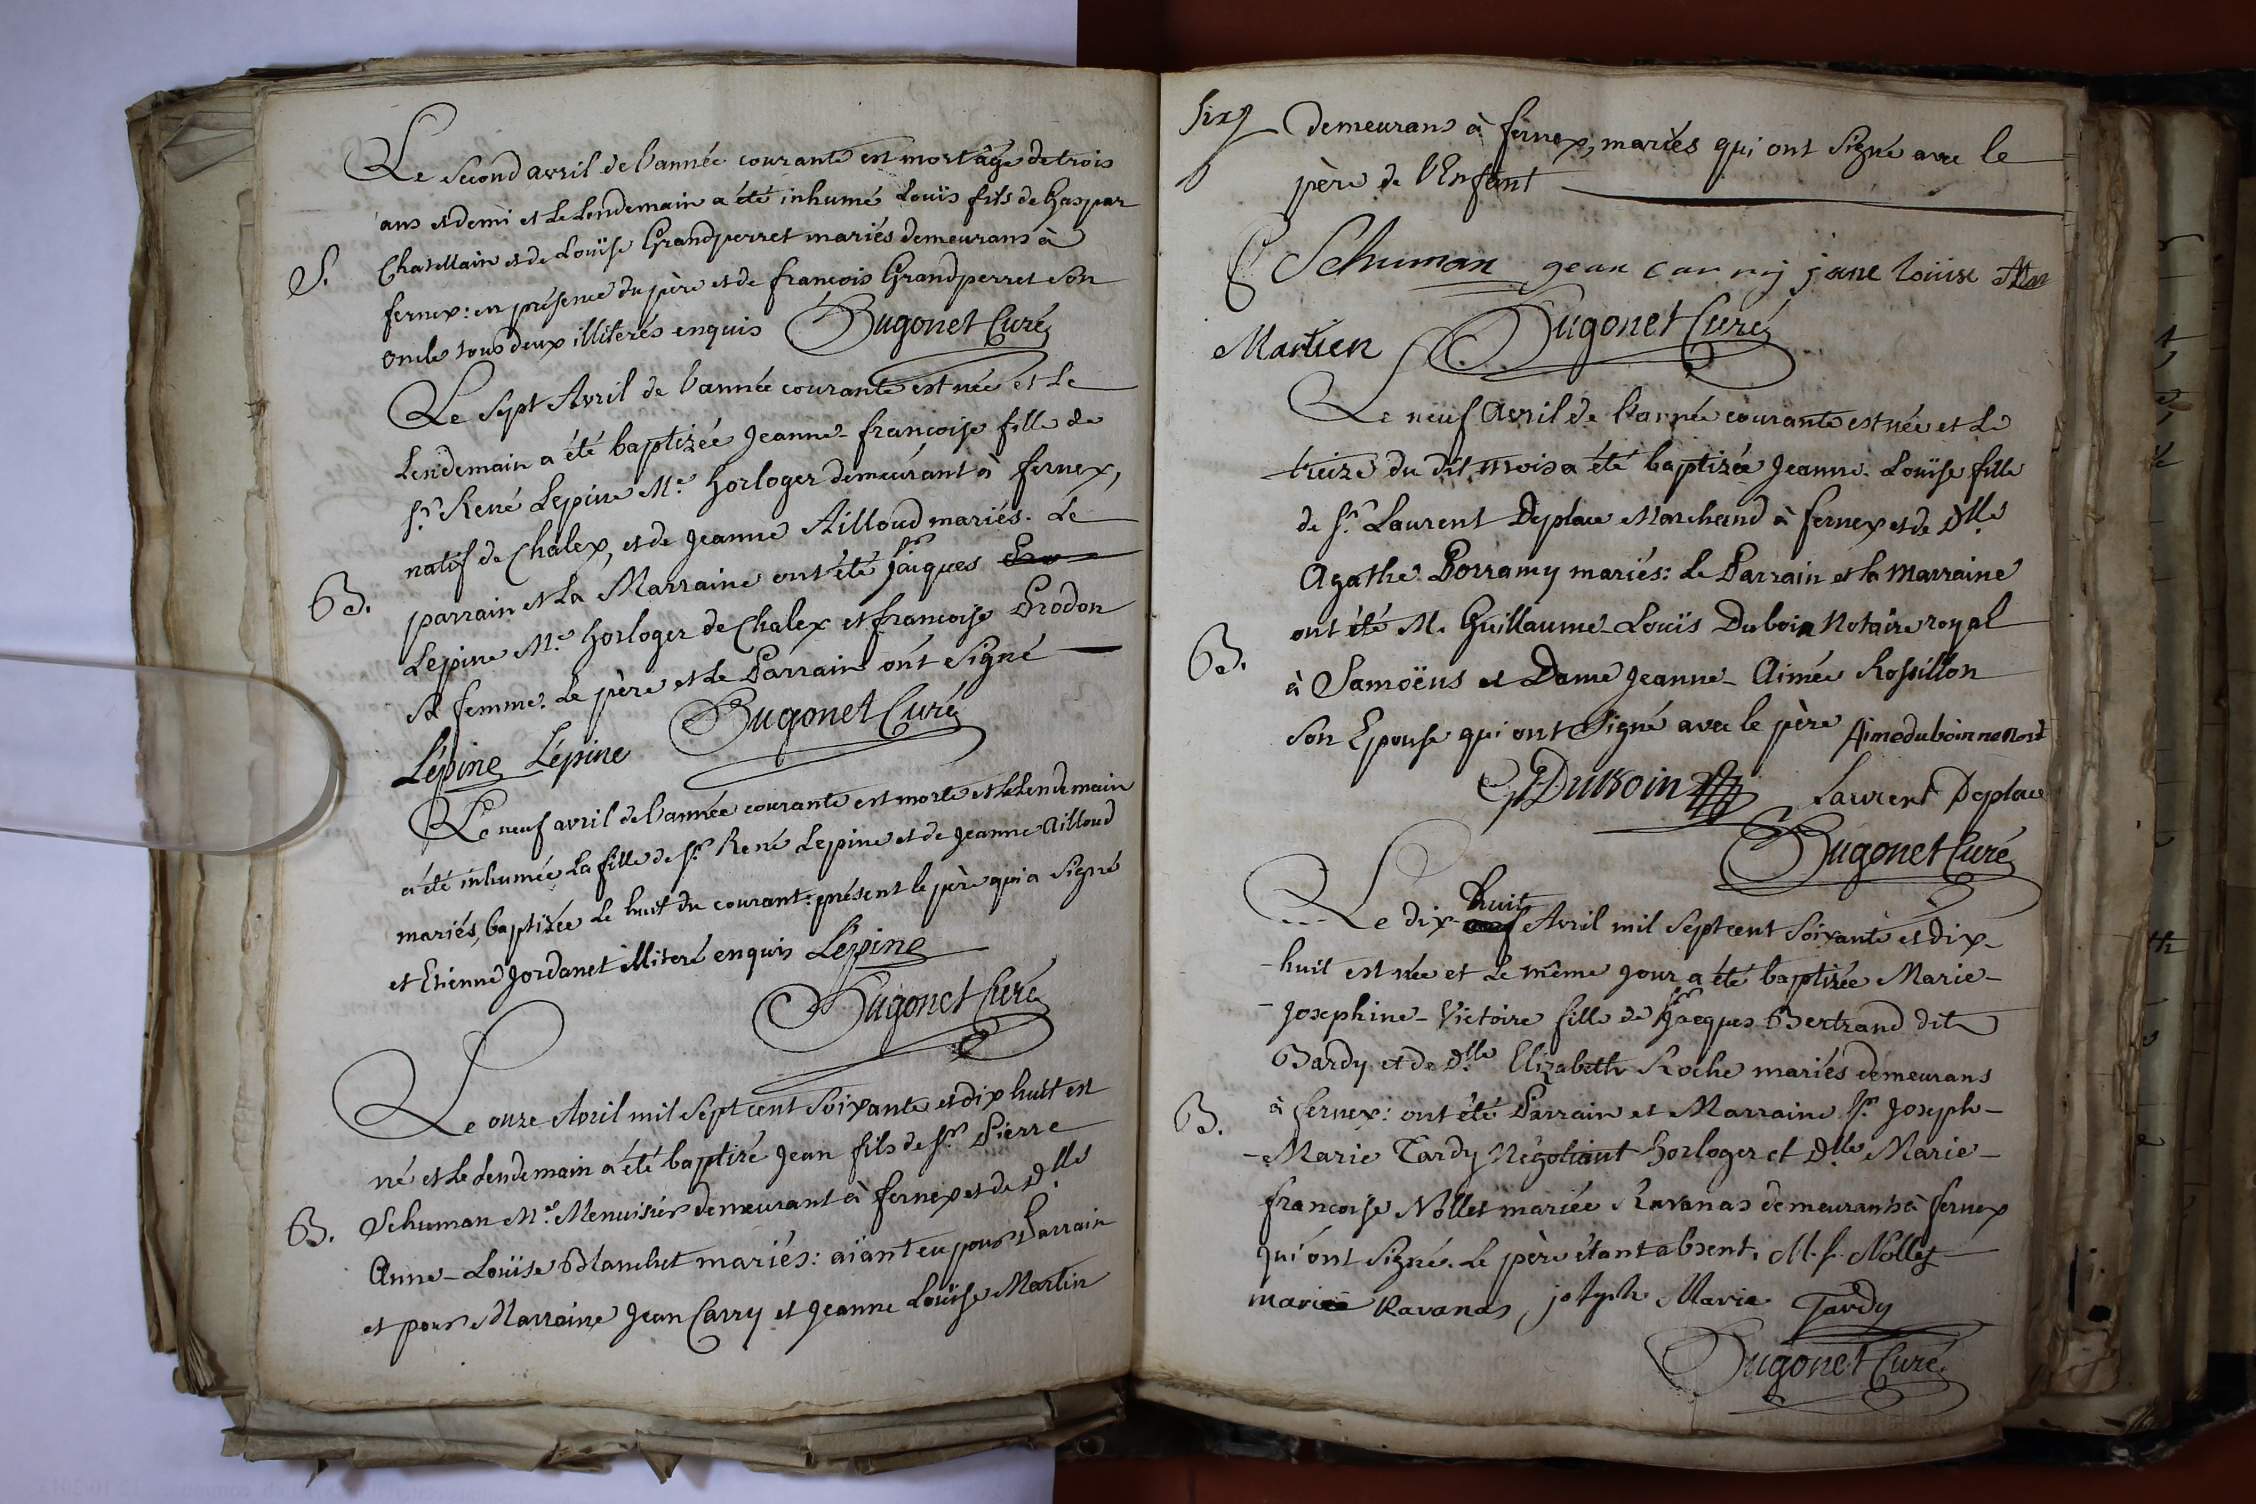 Le second avril de l'année courante est mort âgé de trois
ans et demi et le lendemain a été inhumé Louis fils de Gaspar
S. Chatellain et de Louise Grandperret mariés demeurans à
fernex: en présence du père et de francois Grandperret son
oncle tous deux illiterés enquis Hugonet Curé
Le sept Avril de l'année courante est née et le
lendemain a été baptizée Jeanne-francoise fille de
Sr. René Lepine Me. horloger demeurant à fernex,
natif de Chalex, et de Jeanne Ailloud mariés. Le
B. parrain et la Marraine ont été Sr Jaiques
Lepine Me. horloger de Chalex et francoise Grodon
sa femme. Le père et le Parrain ont signé
Lépine Lépine Hugonet Curé
Le neuf avril de l'année courante est morte et le lendemain
a été inhumée la fille de Sr. René Lepine et de Jeanne Ailloud
mariés, baptizée le huit du courant: présent le père qui a signé
et Etienne Jordanet illiteré enquis Lépine
Hugonet Curé
Le onze Avril mil sept cent soixante et dix huit est
né et le lendemain a été baptizé Jean fils de Sr. Pierre
B. Schuman Me. Menuisier demeurant à fernex et de Dlle.
Anne-Louise Blanchet mariés: aïant eu pour Parrain
et pour Marraine Jean Carry et Jeanne Louise Martin
Six demeurans à fernex, mariés qui ont signé avec le
père de l'Enfant
Schuman jean carry jane louise Mar
Martien Hugonet Curé
Le neuf Avril de l'année courante est née et le
treize du dit mois a été baptizée Jeanne-Louise fille
de Sr. Laurent Deplace Marchand à fernex et de Dlle.
Agathe Porramy mariés: Le Parrain et la Marraine
B. ont été M. Guillaume-Louis Duboin Notaire royal
à Samoëns et Dame Jeanne-Aimée Rossillon
son Epouse qui ont signé avec le père Aimeduboin
Duboin Laurent Deplace
Hugonet Curé
Le dix-huit Avril mil sept cent soixante et dix-
huit est née et le même jour a été baptizée Marie-
Josephine-Victoire fille de Sr Jacques Bertrand dit
Bardy et de Dlle. Elizabeth Roche mariés demeurans
B. à fernex: ont été Parrain et Marraine Sr. Joseph-
Marie Tardy Négotiant horloger et Dlle Marie-
francoise Nollet mariée Ravanas demeurants à fernex
qui ont signé. Le père étant absent. M. f. Nollet
mariée Ravanas, joseph Marie Tardy
Hugonet Curé